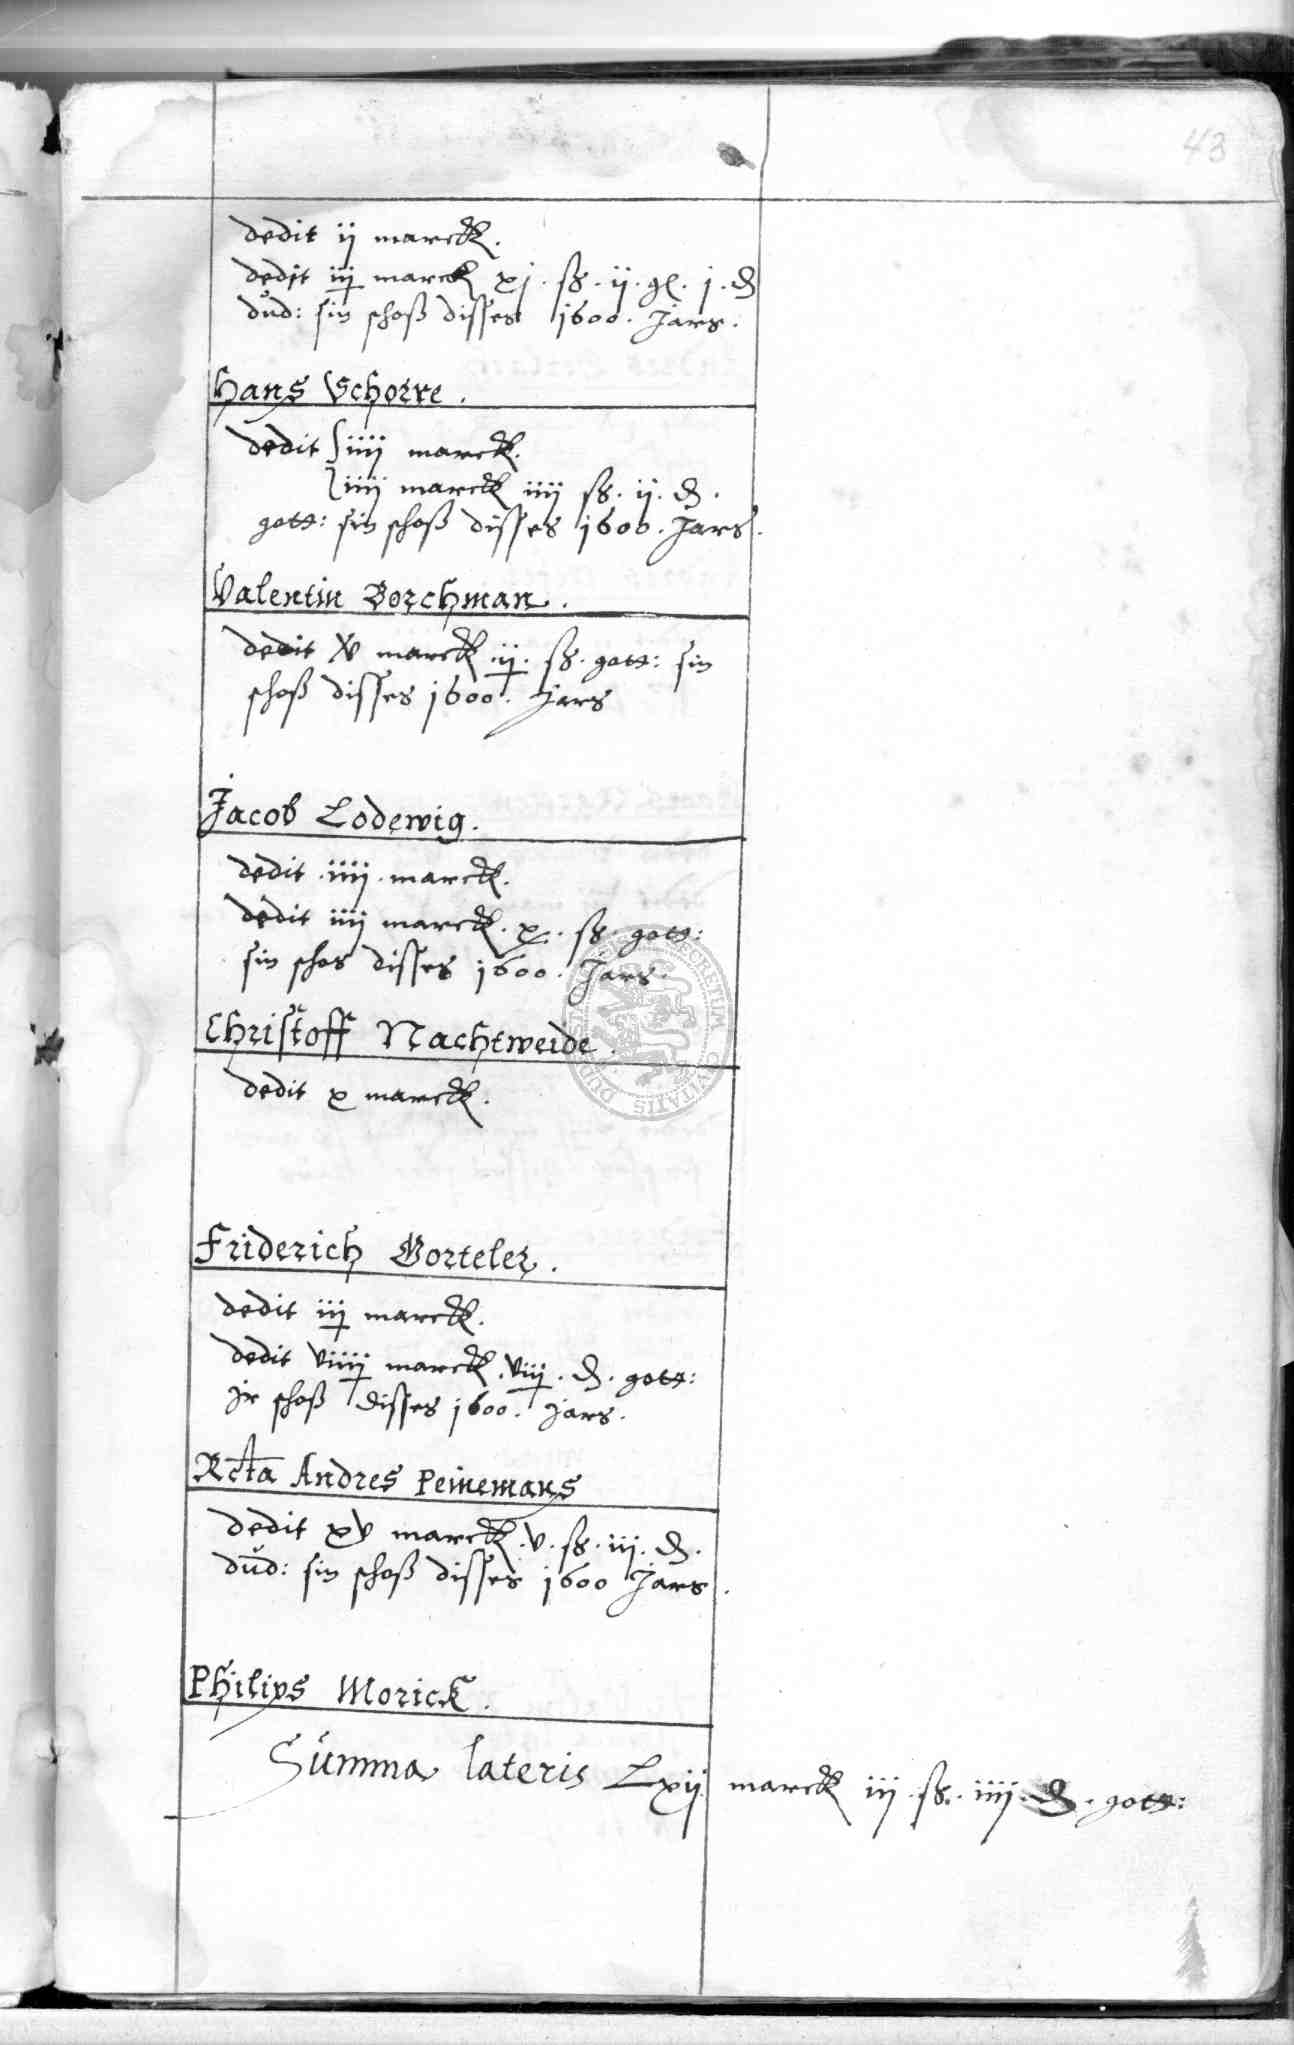 43
dedit ij marck.
dedit iij marck xj. ß. ij. gl. j. d
dud: sin schoß disses 1600. Jars.
Hans Schorre.
dedit iiij marck.
iiij marck iiij ß. ij. d.
gott: sin schoß disses 1600. Jars.
Valentin Borchman.
dedit xv marck .ij. ß. gott: sin
schoß disses 1600. Jars
Jacob Lodewig.
dedit .iiij. marck.
dedit iiij marck. x. ß. gott:
sin schos disses 1600. Jars.
Christoff Nachtweide.
dedit x marck.
Friderich Gorteler.
dedit iij marck.
dedit viiij marck. viij. d. gott:
jr schoß disses 1600. Jars.
Rcta Andres Peinemans
dedit xv marck. v. ß. iij. d.
dud: sin schoß disses 1600 Jars.
Philips Morick.
Summa lateris Lxij marck iij. ß. iiij. d. gott:
SECRETUM CIVITATIS DUDE